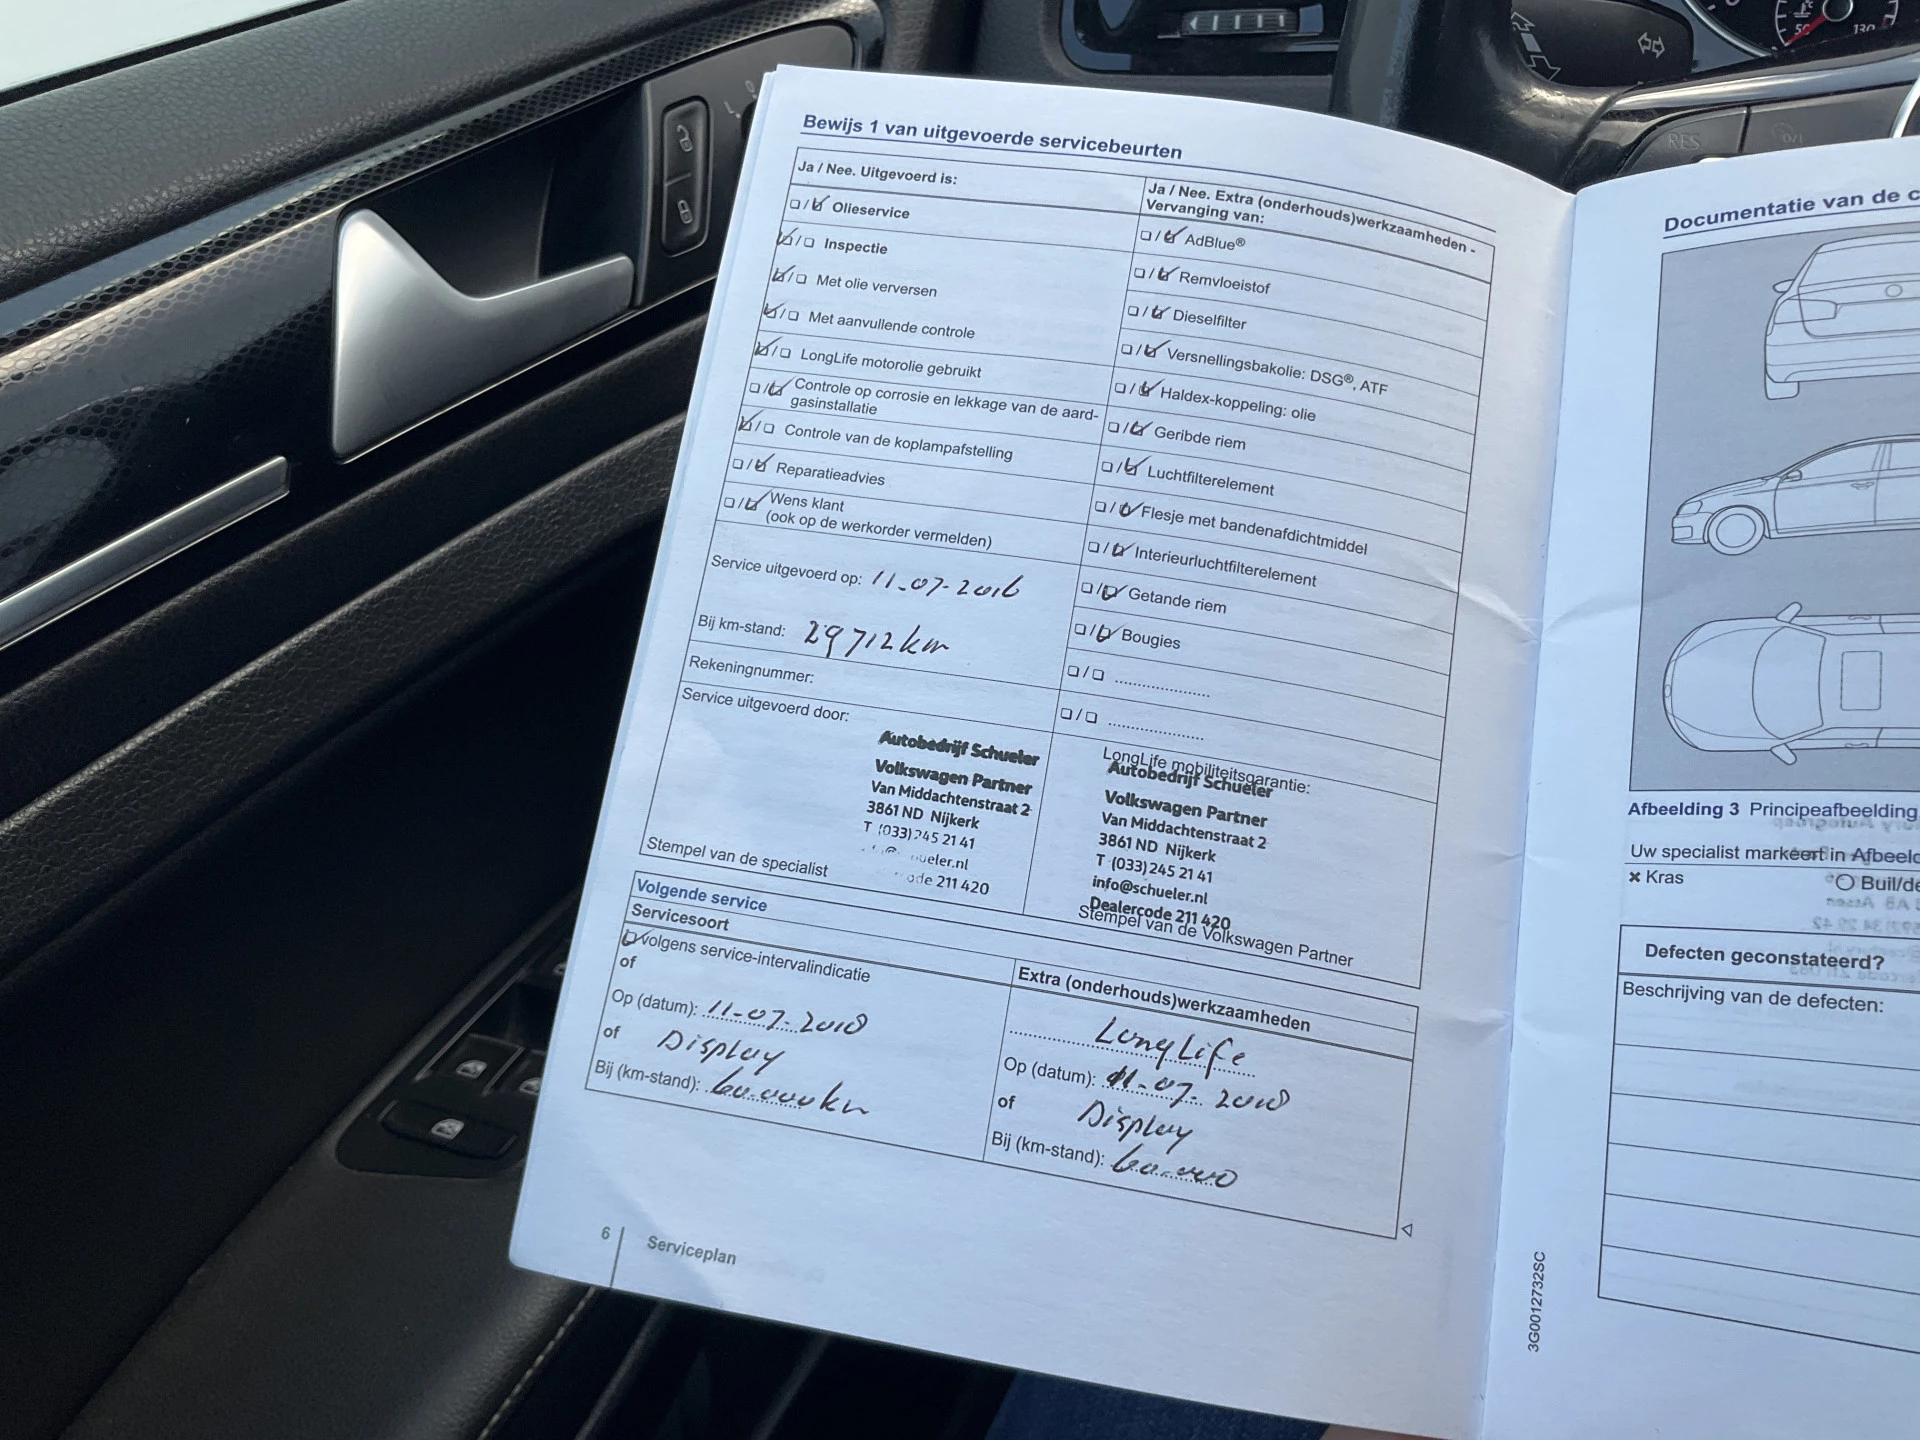 Bewijs 1 van uitgevoerde servicebeurten
Ja / Nee. Uitgevoerd is:
☐/☑ Olieservice
☑/☐ Inspectie
☑/☐ Met olie verversen
☑/☐ Met aanvullende controle
☑/☐ LongLife motorolie gebruikt
☐/☑ Controle op corrosie en lekkage van de aard-
gasinstallatie
☑/☐ Controle van de koplampafstelling
☐/☑ Reparatieadvies
☐/☑ Wens klant
(ook op de werkorder vermelden)
Service uitgevoerd op: 11-07-2016
Bij km-stand: 29712 km
Rekeningnummer:
Service uitgevoerd door:
Autobedrijf Schueler
Volkswagen Partner
Van Middachtenstraat 2
3861 ND Nijkerk
T (033) 245 21 41
ueler.nl
ode 211 420
Stempel van de specialist
Ja / Nee. Extra (onderhouds)werkzaamheden -
Vervanging van:
☐/☑ AdBlue®
☐/☑ Remvloeistof
☐/☑ Dieselfilter
☐/☑ Versnellingsbakolie: DSG®, ATF
☐/☑ Haldex-koppeling: olie
☐/☑ Geribde riem
☐/☑ Luchtfilterelement
☐/☑ Flesje met bandenafdichtmiddel
☐/☑ Interieurluchtfilterelement
☐/☑ Getande riem
☐/☑ Bougies
☐/☐ ......................
☐/☐ ......................
LongLife mobiliteitsgarantie:
Autobedrijf Schueler
Volkswagen Partner
Van Middachtenstraat 2
3861 ND Nijkerk
T (033) 245 21 41
info@schueler.nl
Dealercode 211 420
Stempel van de Volkswagen Partner
Volgende service
Servicesoort
☑ volgens service-intervalindicatie
of
Op (datum): 11-07-2018
of Display
Bij (km-stand): 60.000 km
Extra (onderhouds)werkzaamheden
LongLife
Op (datum): 11-07-2018
of Display
Bij (km-stand): 60.000
6 Serviceplan
Documentatie van de c
Afbeelding 3 Principeafbeelding
Uw specialist markeert in Afbeeld
× Kras
○ Buil/de
Defecten geconstateerd?
Beschrijving van de defecten:
3G0012732SC
RES
50
130